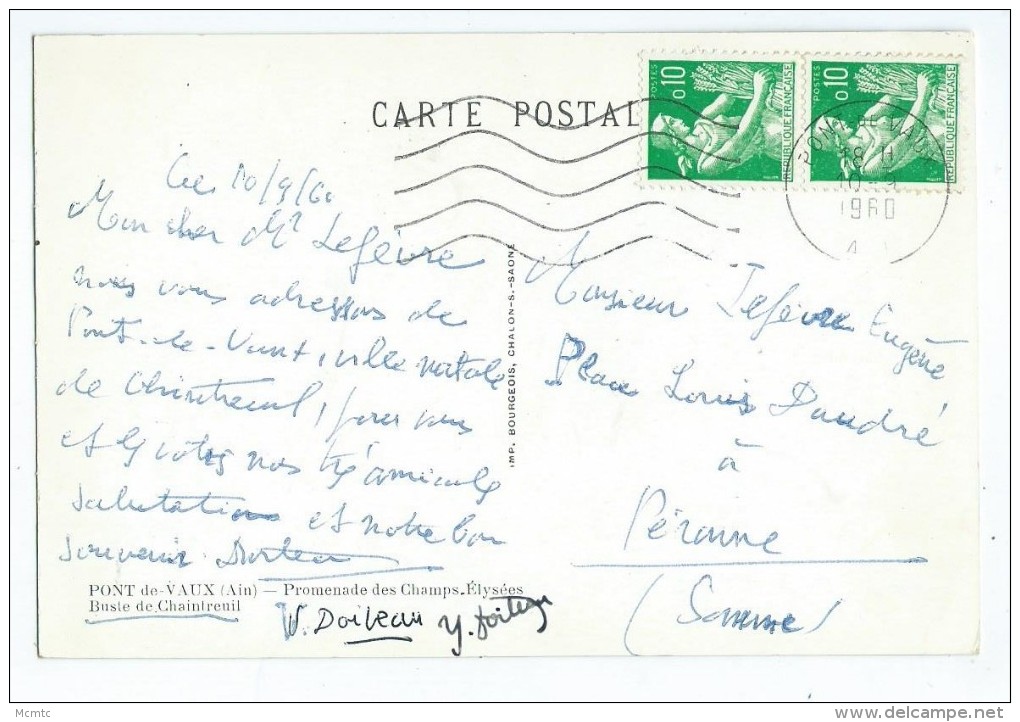 CARTE POSTALE
POSTES
0,10
REPUBLIQUE FRANÇAISE
POSTES
0,10
REPUBLIQUE FRANÇAISE
PONT DE VAUX
18 H
10 - 9
1960
Ce 10/9/60
Mon cher Mr Lefèvre
nous vous adressons de
Pont-de-Vaux, ville natale
de Chintreuil, pour vous
et les vôtres nos très amicales
salutations et notre bon
souvenir.
IMP. BOURGEOIS, CHALON-S.-SAONE
Monsieur Lefèvre Eugène
Place Louis Daudré
à
Péronne
(Somme)
PONT de-VAUX (Ain) — Promenade des Champs-Élysées
Buste de Chaintreuil
Mcmtc
delcampe.net